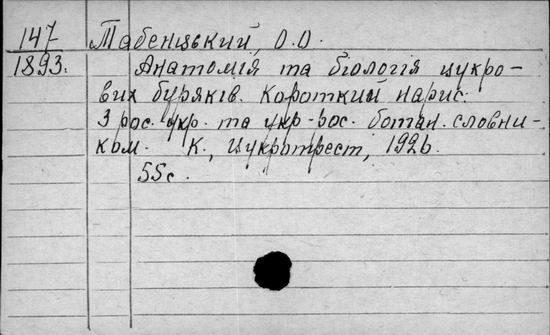 147 Табенцький, О.О.
1893. Анатомія та біологія цукро-
вих буряків. Короткий нарис.
З рос.-укр. та укр.-рос. ботан. словни-
ком. К., Цукротрест, 1926.
55 с.